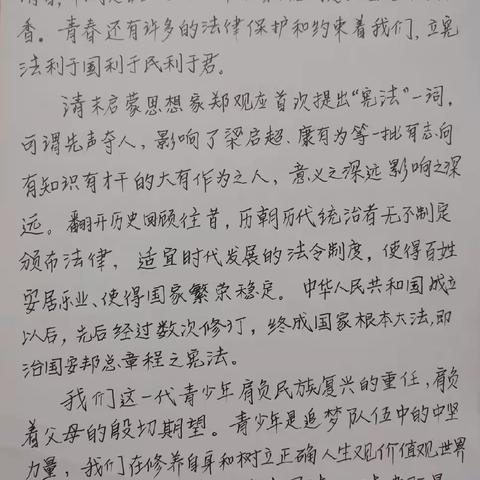 香。青春还有许多的法律保护和约束着我们，立宪
法利于国利于民利于君。
清末启蒙思想家郑观应首次提出“宪法”一词，
可谓先声夺人，影响了梁启超、康有为等一批有志向
有知识有才干的大有作为之人，意义之深远影响之深
远。翻开历史回顾往昔，历朝历代统治者无不制定
颁布法律，适宜时代发展的法令制度，使得百姓
安居乐业、使得国家繁荣稳定。中华人民共和国成立
以后，先后经过数次修订，终成国家根本大法，即
治国安邦总章程之宪法。
我们这一代青少年肩负民族复兴的重任，肩负
着父母的殷切期望。青少年是追梦队伍中的中坚
力量，我们在修养自身和树立正确人生观价值观世界